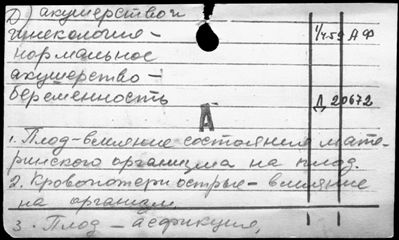 Д) акушерство и
гинекология-
нормальное
акушерство-
беременность
1/459 АФ
Д 20672
А
1. Плод-влияние состояния мате-
ринского организма на плод.
2. Кровопотери острые-влияние
на организм
3. Плод-асфикция,